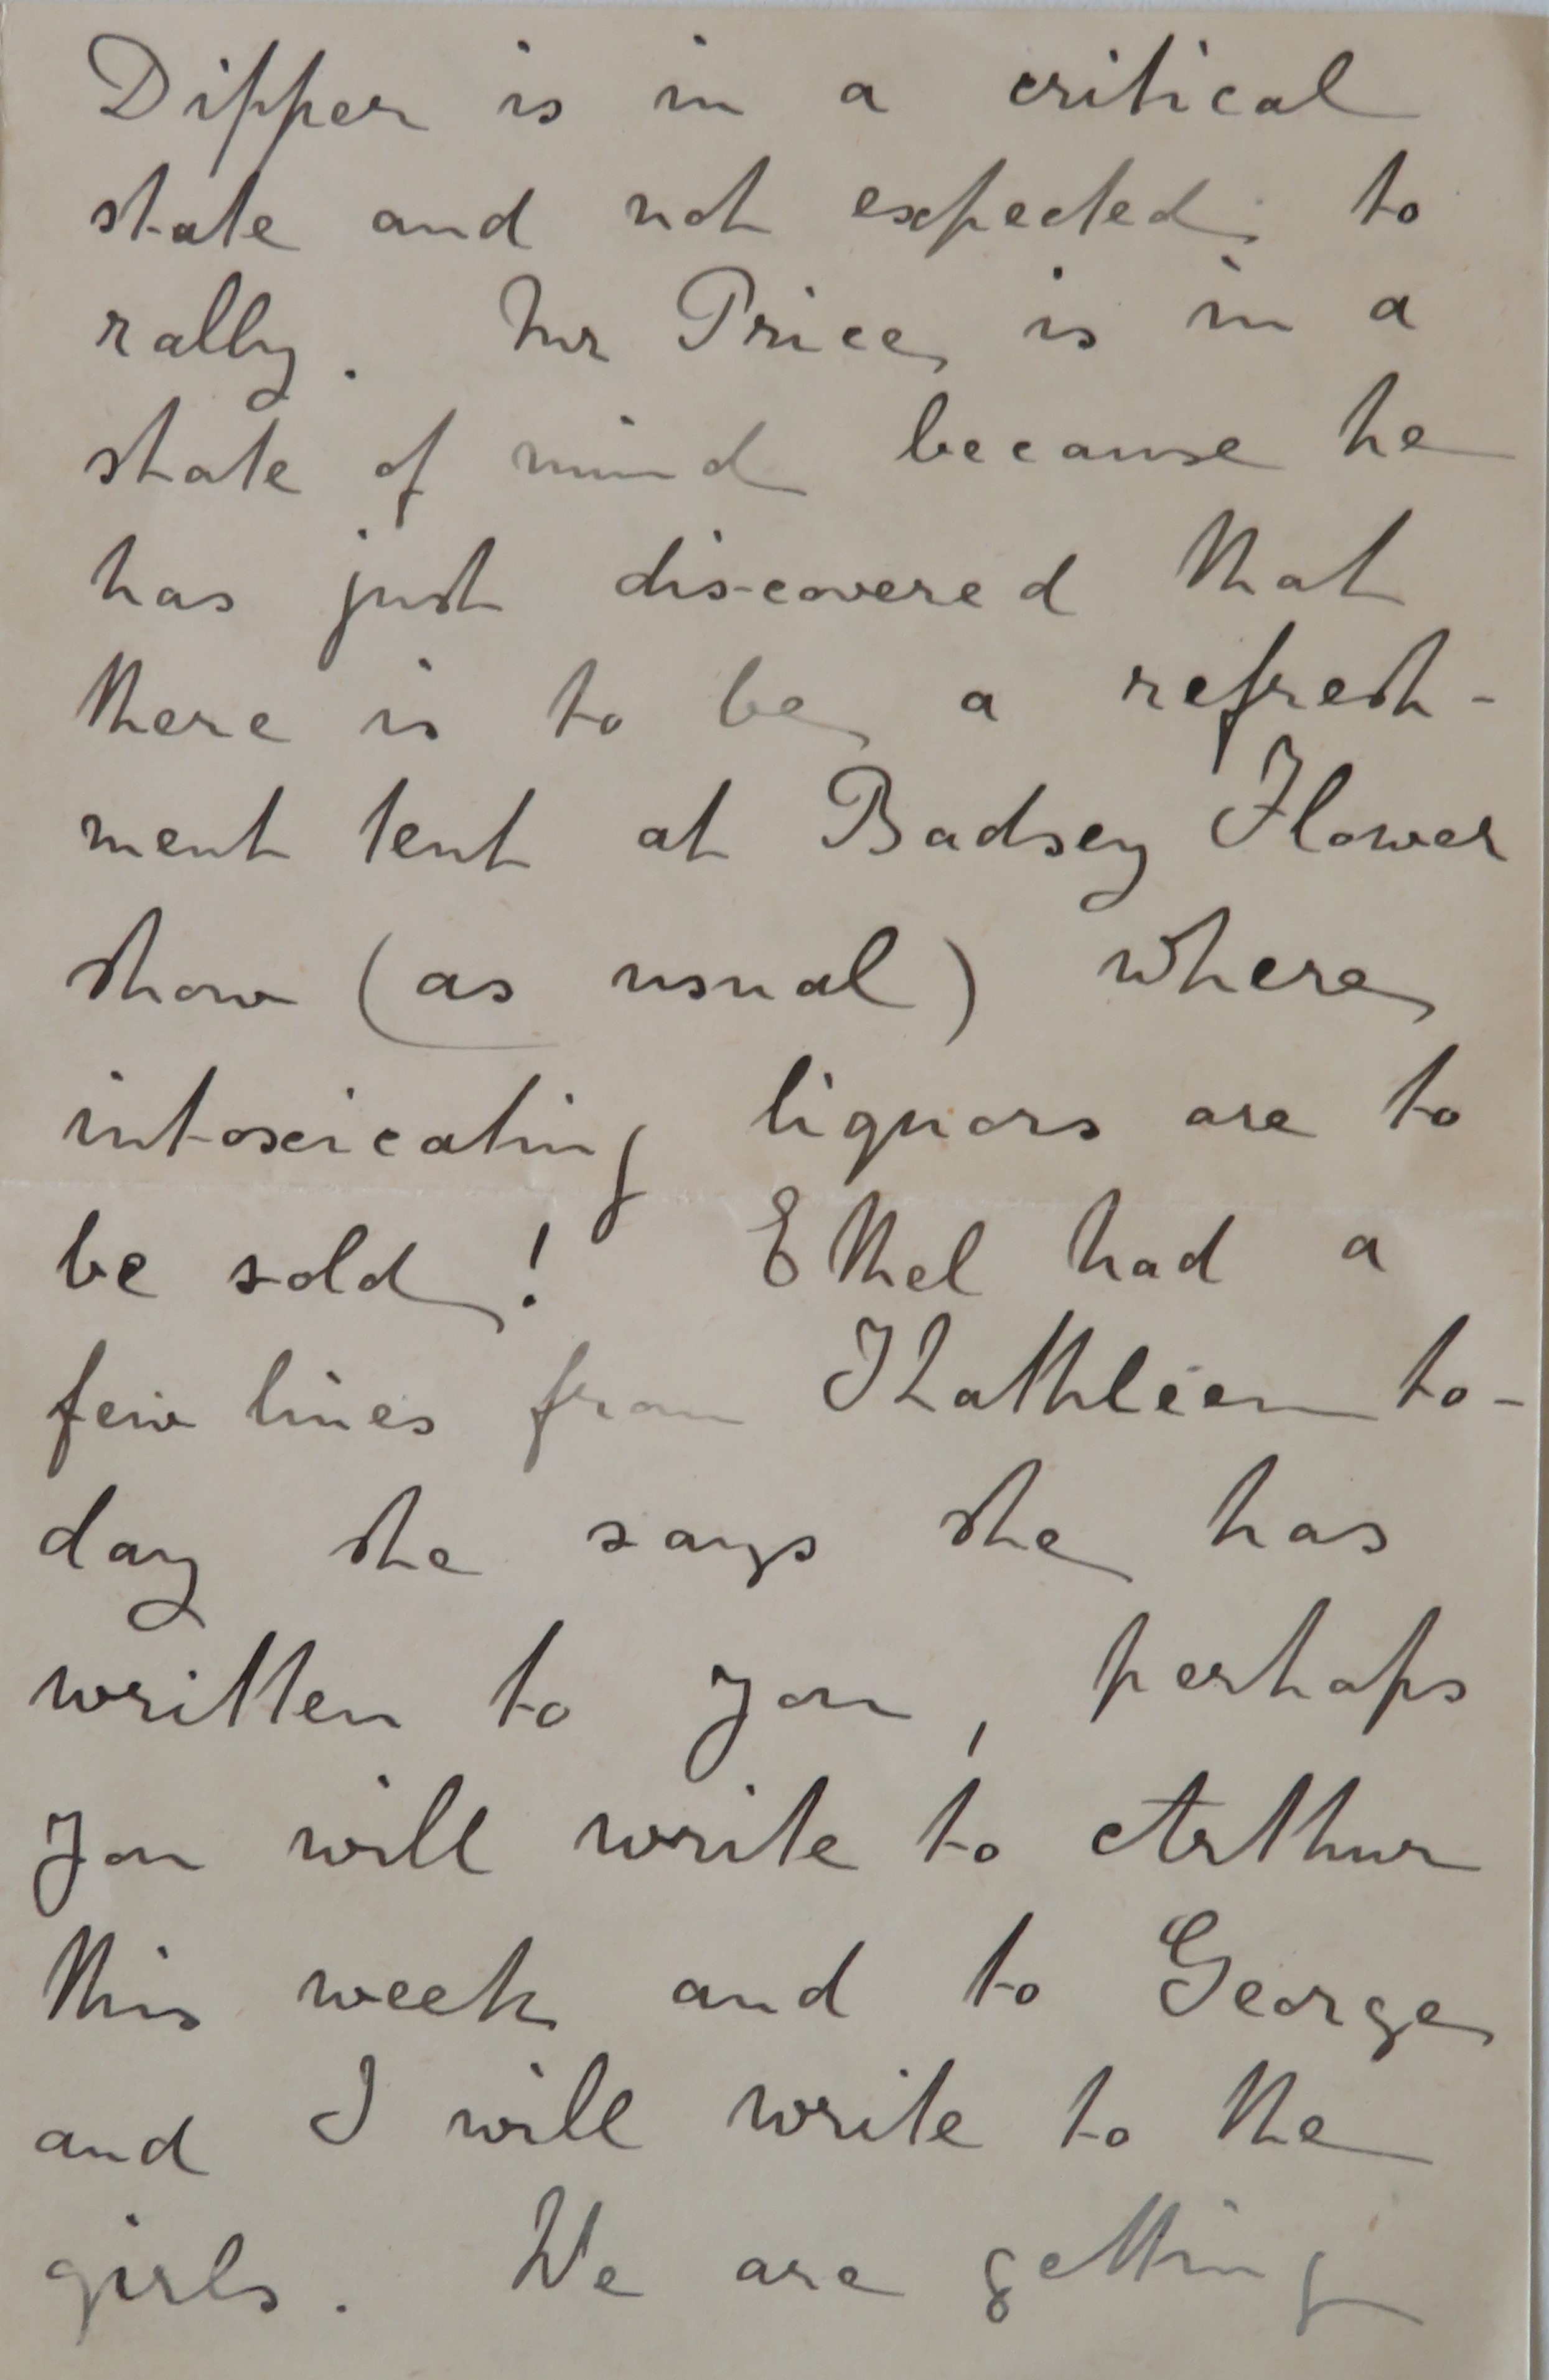 Dipper is in a critical
state and not expected to
rally. Mr Price is in a
state of mind because he
has just discovered that
there is to be a refresh-
ment tent at Badsey Flower
show (as usual) where
intoxicating liquors are to
be sold! Ethel had a
few lines from Kathleen to-
day she says she has
written to you, perhaps
you will write to Arthur
this week and to George
and I will write to the
girls. We are getting